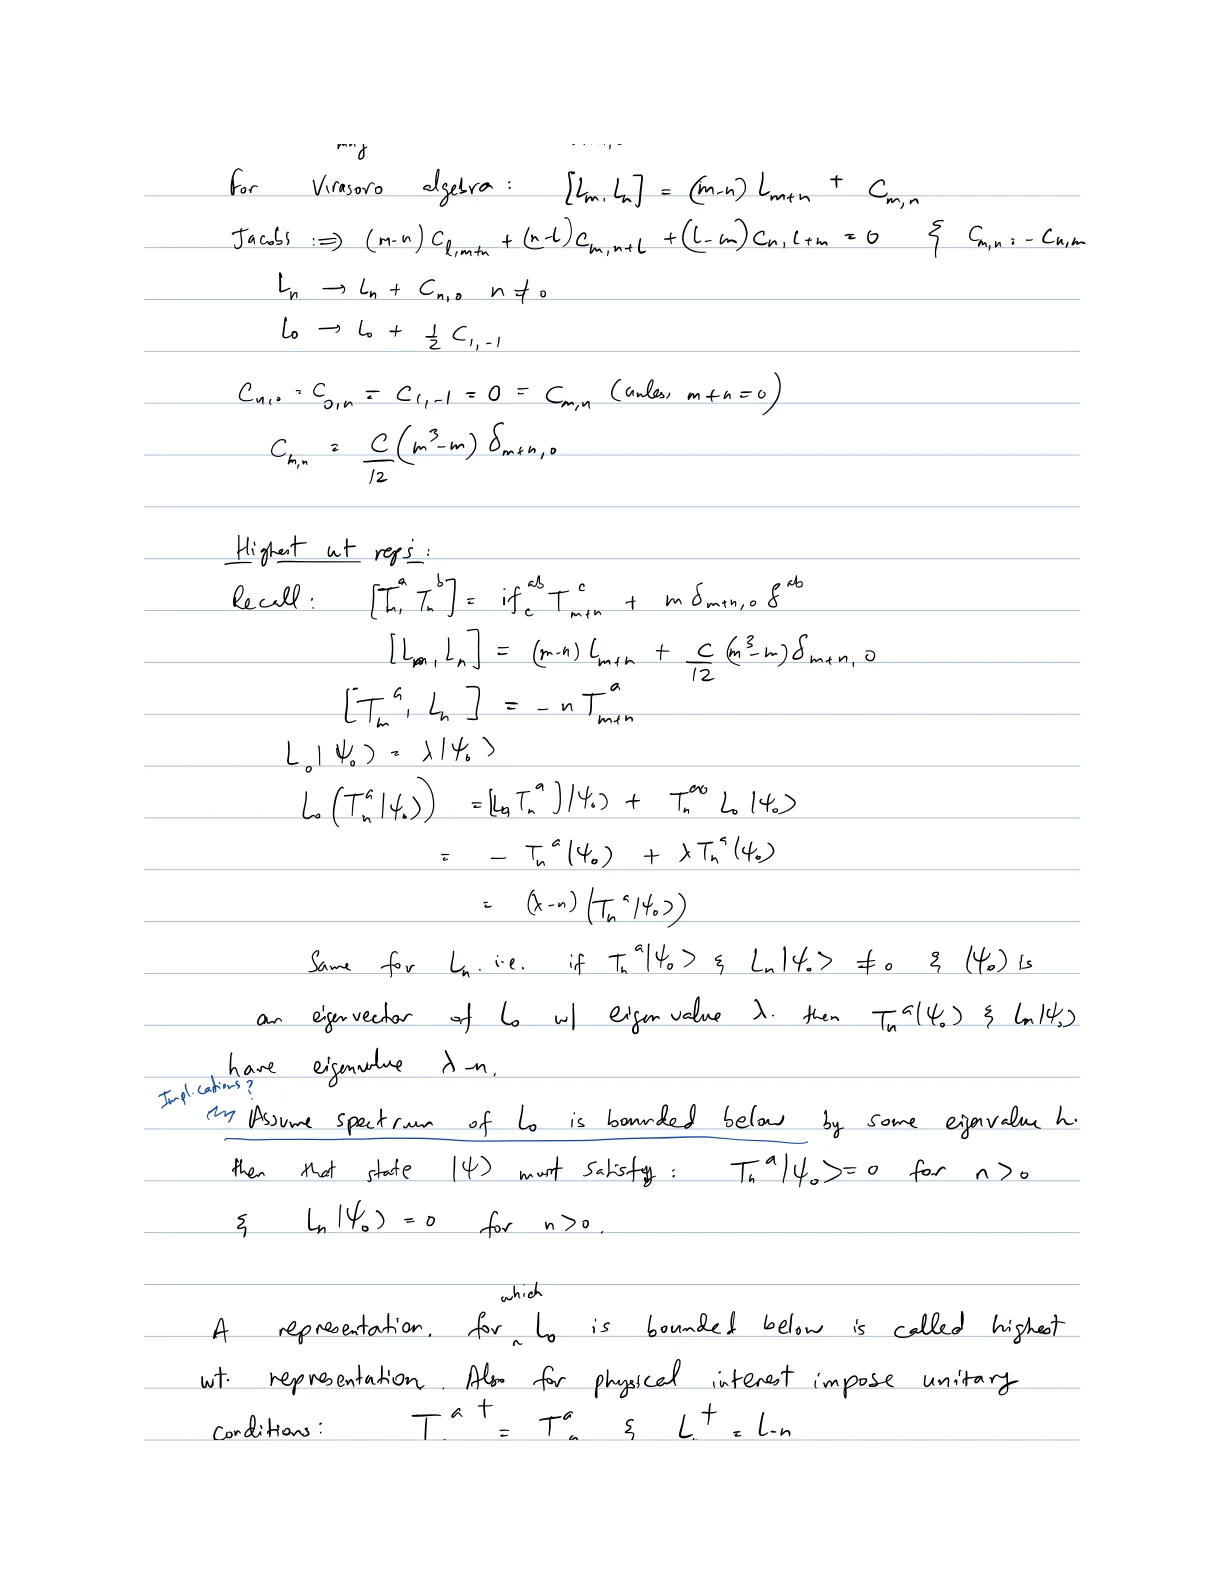 For Virasoro algebra : [Lm, Ln] = (m-n) Lm+n + Cm,n
Jacobi :⇒ (m-n) Cl,m+n + (n-l) Cm,n+l + (l-m) Cn,l+m = 0 & Cm,n = - Cn,m
Ln → Ln + Cn,0 n ≠ 0
L0 → L0 + 1/2 C1,-1
Cn,0 = C0,n = C1,-1 = 0 = Cm,n (unless m+n=0)
Cm,n = C/12 (m³-m) δm+n,0
Highest wt reps :
Recall : [Tm^a, Tn^b] = i f^ab_c T^c_m+n + m δm+n,0 δ^ab
[Lm, Ln] = (m-n) Lm+n + C/12 (m³-m) δm+n,0
[Tm^a, Ln] = - n T^a_m+n
L0 |ψ0> = λ|ψ0>
L0 (Tn^a |ψ0>) = [L0, Tn^a] |ψ0> + Tn^a L0 |ψ0>
= - Tn^a |ψ0> + λ Tn^a |ψ0>
= (λ-n) (Tn^a |ψ0>)
Same for Ln. i.e. if Tn^a |ψ0> & Ln |ψ0> ≠ 0 & |ψ0> is
an eigenvector of L0 w/ eigenvalue λ. then Tn^a |ψ0> & Ln |ψ0>
have eigenvalue λ-n.
Implications?
Assume spectrum of L0 is bounded below by some eigenvalue h.
then that state |ψ> must satisfy : Tn^a |ψ0> = 0 for n>0
& Ln |ψ0> = 0 for n>0.
which
A representation. for L0 is bounded below is called highest
wt. representation. Also for physical interest impose unitary
conditions : T^a† = T^a & L† = L-n